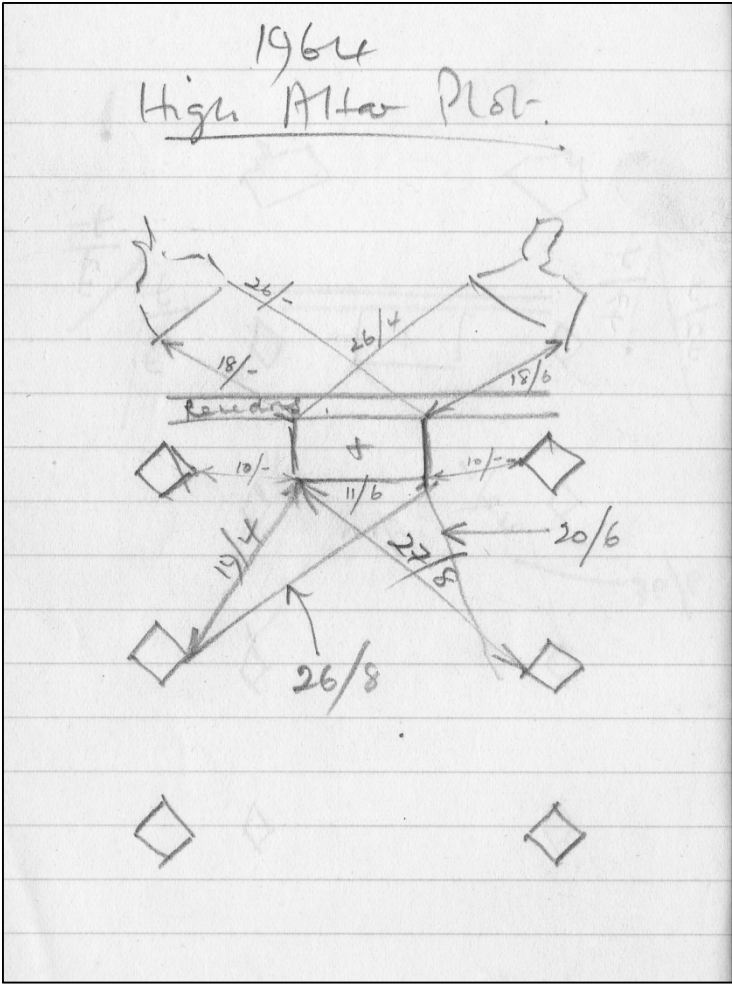 1964
High Altar Plot.
26/-
26/4
18/-
18/6
Reredos.
+
10/-
11/6
10/-
19/4
27/8
20/6
26/8